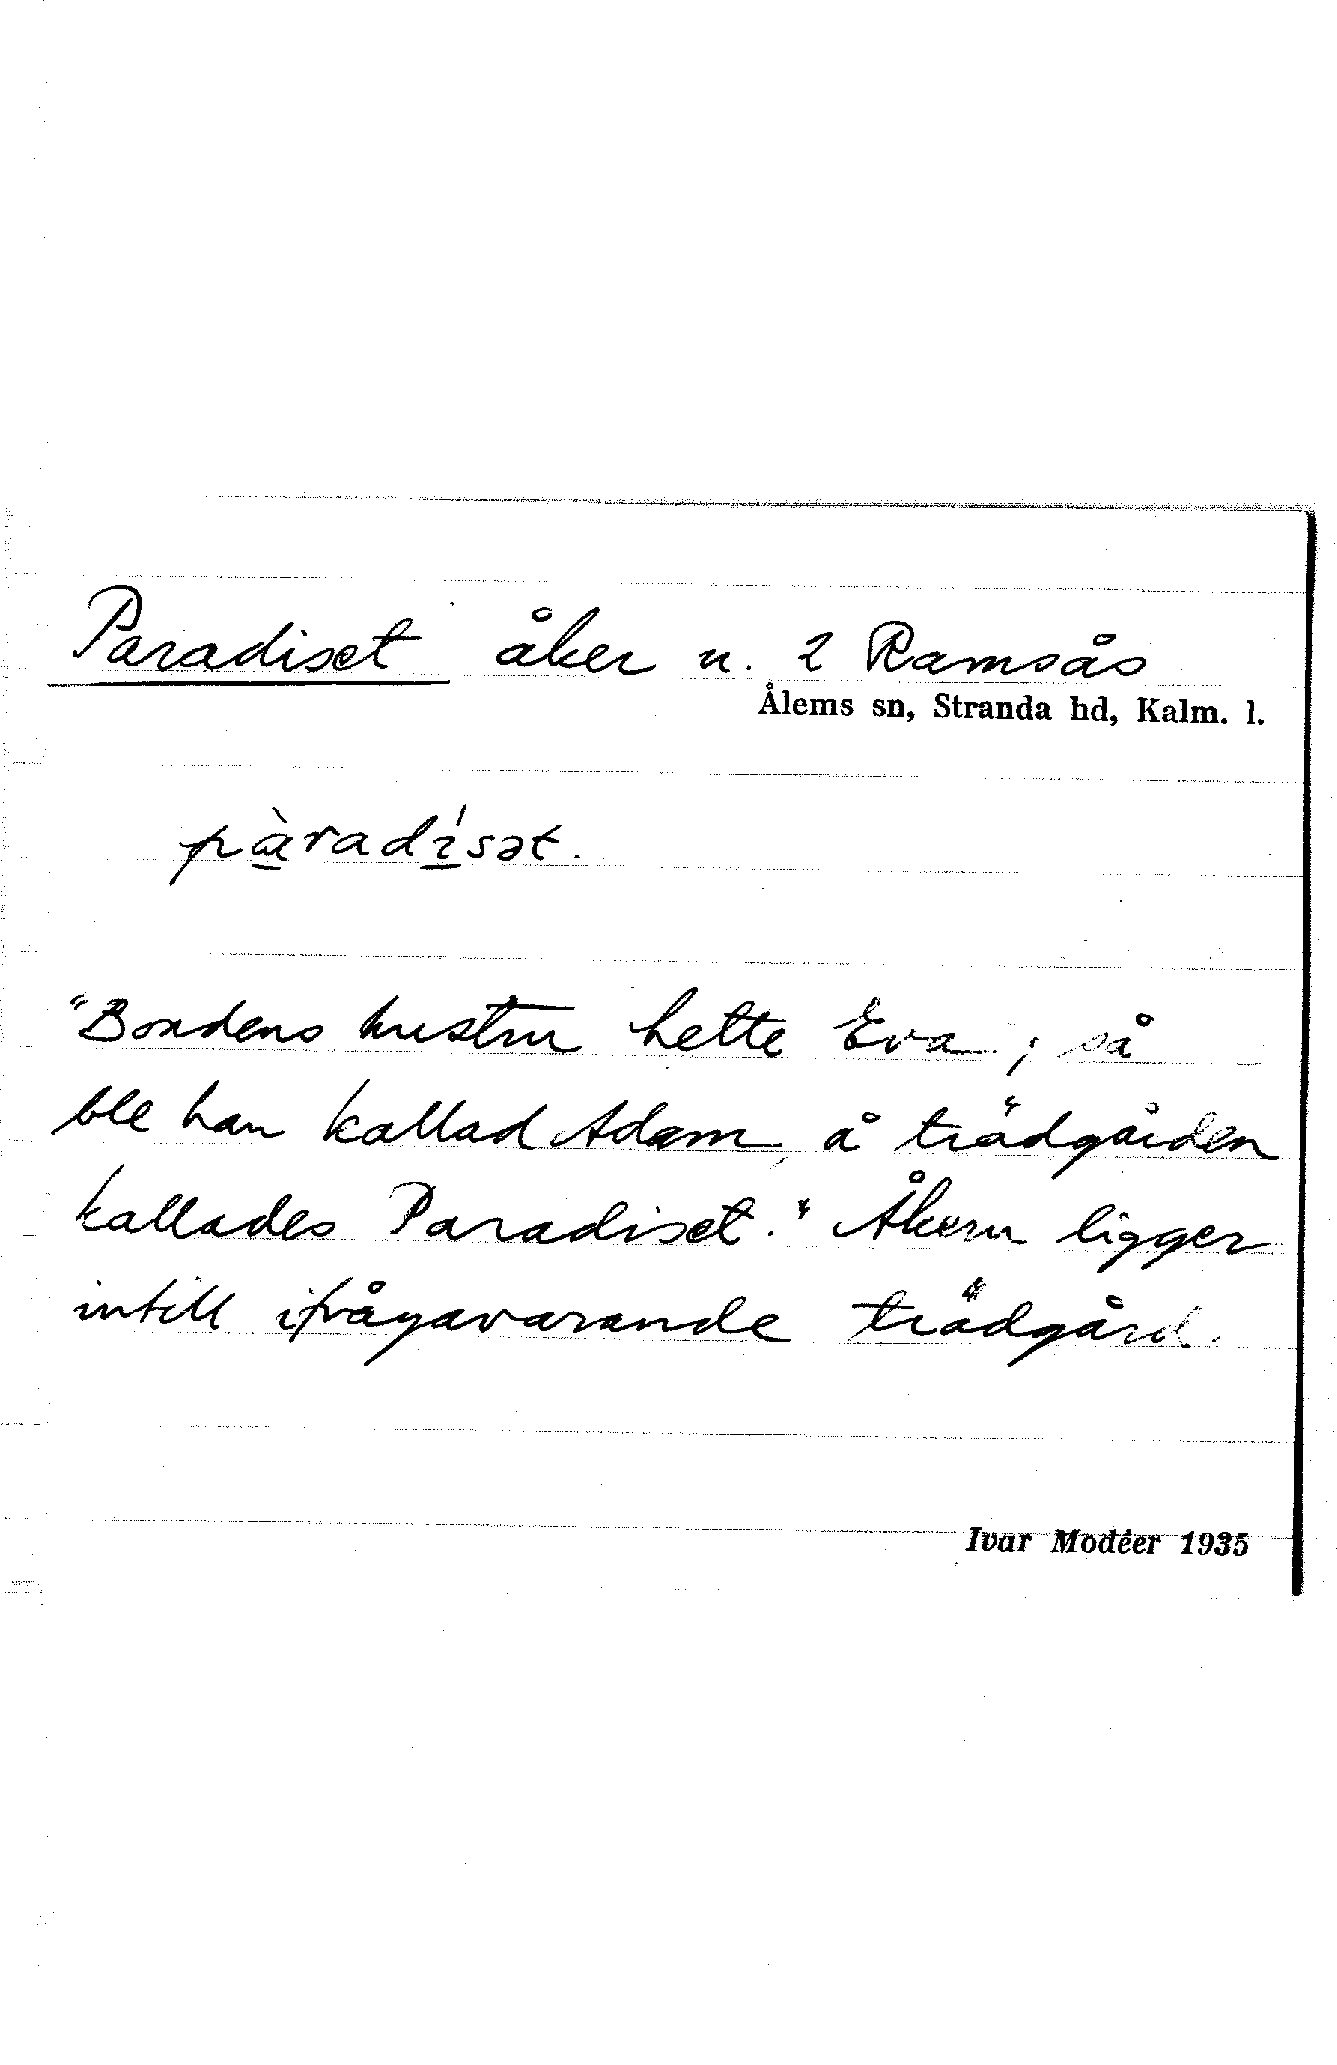 Paradiset åker u. 2 Ramsås
Ålems sn, Stranda hd, Kalm. l.
pàradísət.
"Bondens hustru hette Eva; så
ble han kallad Adam, å trädgården
kallades Paradiset." Åkern ligger
intill ifrågavarande trädgård.
Ivar Modéer 1935